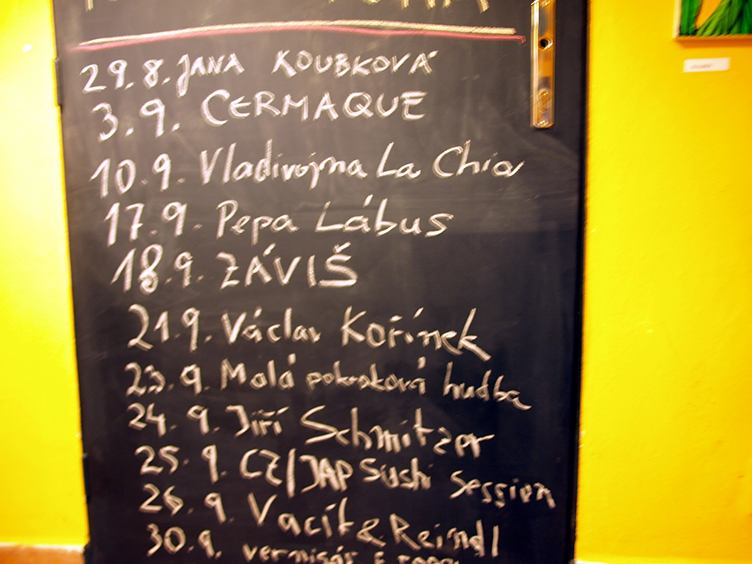 29.8. JANA KOUBKOVÁ
3.9. CERMAQUE
10.9. Vladivojna La Chia
17.9. Pepa Lábus
18.9. ZÁVIŠ
21.9. Václav Kořínek
23.9. Malá pokojková hudba
24.9. Jiří Schmitzer
25.9. CZ/JAP Sushi Session
26.9. Vacít & Reindl
30.9. vernisáž